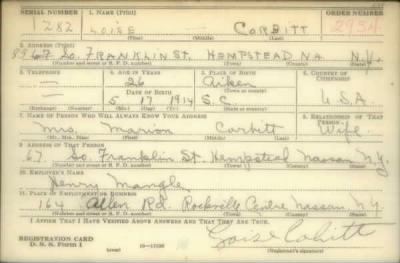 SERIAL NUMBER 1. NAME (Print) ORDER NUMBER
1282 LOISE CORBITT 2954
(First) (Middle) (Last)
2. ADDRESS (Print)
67 So. FRANKLIN ST. HEMPSTEAD NA. N.Y.
(Number and street or R. F. D. number) (Town) (County) (State)
3. TELEPHONE 4. AGE IN YEARS 5. PLACE OF BIRTH 6. COUNTRY OF CITIZENSHIP
— 26 Aiken
DATE OF BIRTH (Town or county)
— 5 17 1914 S.C. U.S.A.
(Exchange) (Number) (Mo.) (Day) (Yr.) (State or country)
7. NAME OF PERSON WHO WILL ALWAYS KNOW YOUR ADDRESS 8. RELATIONSHIP OF THAT PERSON
Mrs. Marion Corbitt Wife
(Mr., Mrs., Miss) (First) (Middle) (Last)
9. ADDRESS OF THAT PERSON
67 So. Franklin St. Hempstead Nassau N.Y.
(Number and street or R. F. D. number) (Town) (County) (State)
10. EMPLOYER'S NAME
Henry Mangle
11. PLACE OF EMPLOYMENT OR BUSINESS
164 Allen Rd. Rockville Centre Nassau N.Y.
(Number and street or R. F. D. number) (Town) (County) (State)
I AFFIRM THAT I HAVE VERIFIED ABOVE ANSWERS AND THAT THEY ARE TRUE.
REGISTRATION CARD
D. S. S. Form 1 (over) (Registrant's signature)